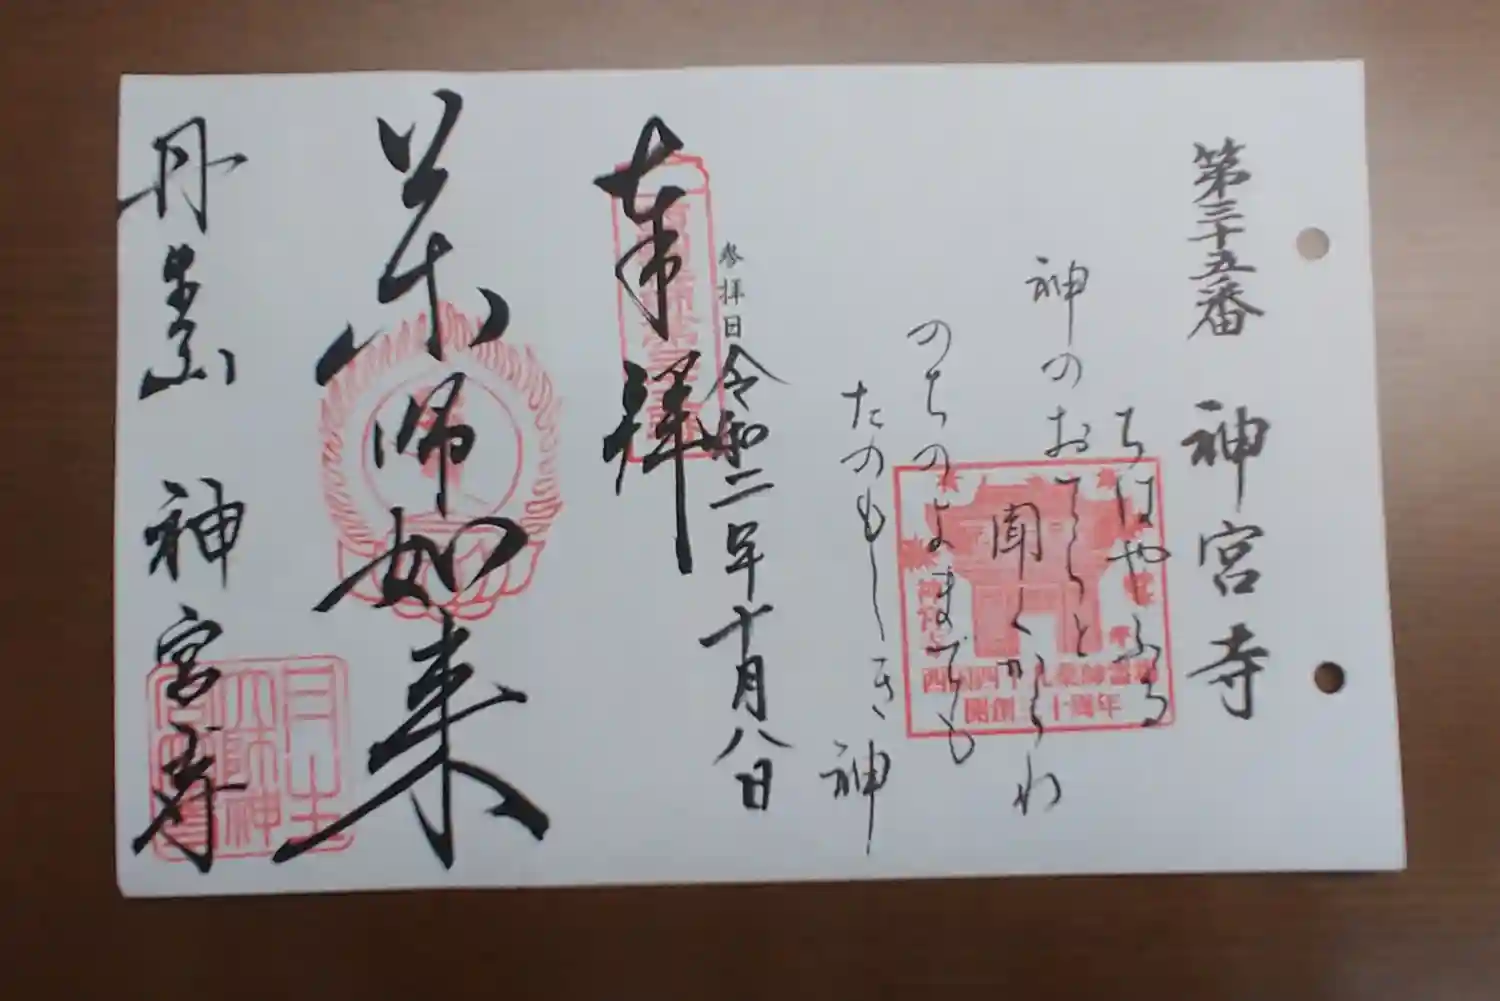 第三十五番 神宮寺
ちはやふる
神のおてらと
聞くからわ
のちのよまでも
たのもしき神
西国四十九薬師霊場
開創三十周年
参拝日 令和二年十月八日
奉拝
薬師如来
丹生山 神宮寺